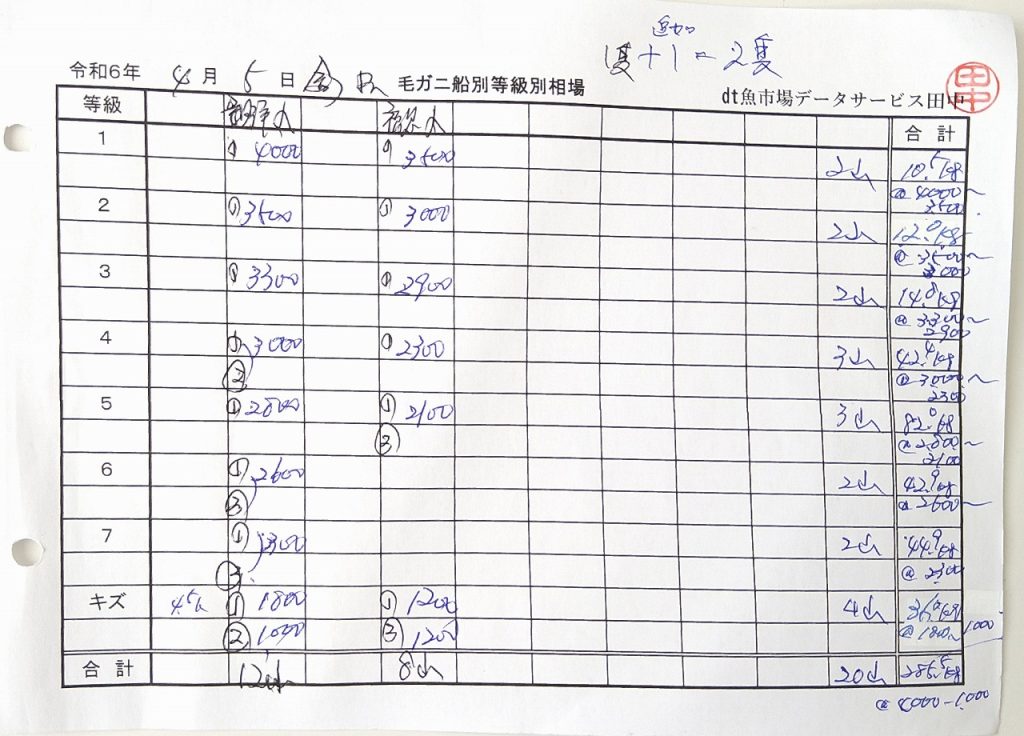 追加
1隻+1=2隻
令和6年 4月 5日 金) 毛ガニ船別等級別相場
dt魚市場データサービス田中
田中
等級 合計
1 ① 4000 ① 3500 2山 10.5kg
@ 4000~
3500
2 ① 3500 ① 3000 2山 12.0kg
@ 3500~
3000
3 ① 3300 ① 2900 2山 14.8kg
@ 3300~
2900
4 ① 3000 ① 2300 3山 42.4kg
② @ 3000~
2300
5 ① 2800 ① 2100 3山 82.0kg
③ @ 2800~
2100
6 ① 2600 2山 42.9kg
③ @ 2600~
7 ① 2300 2山 44.9kg
③ @ 2300
キズ ① 1800 ① 1200 4山 36.0kg
② 1000 ③ 1200 @ 1800~1000
合計 12山 8山 20山 285.5kg
@ 4000-1000